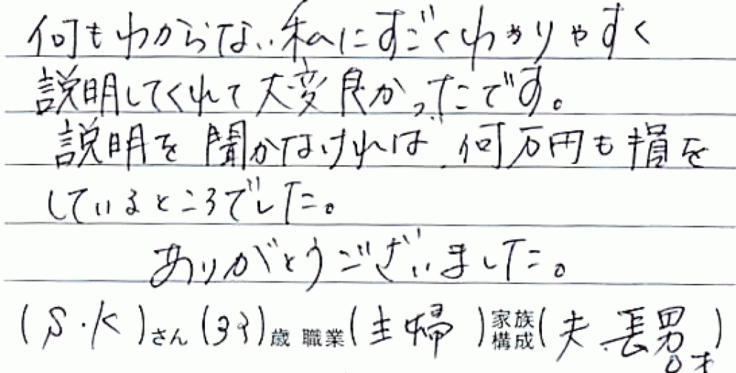 何もわからない私にすごくわかりやすく
説明してくれて大変良かったです。
説明を聞かなければ何万円も損を
しているところでした。
ありがとうございました。
(S.K)さん(33)歳 職業(主婦)家族構成(夫.長男0才)